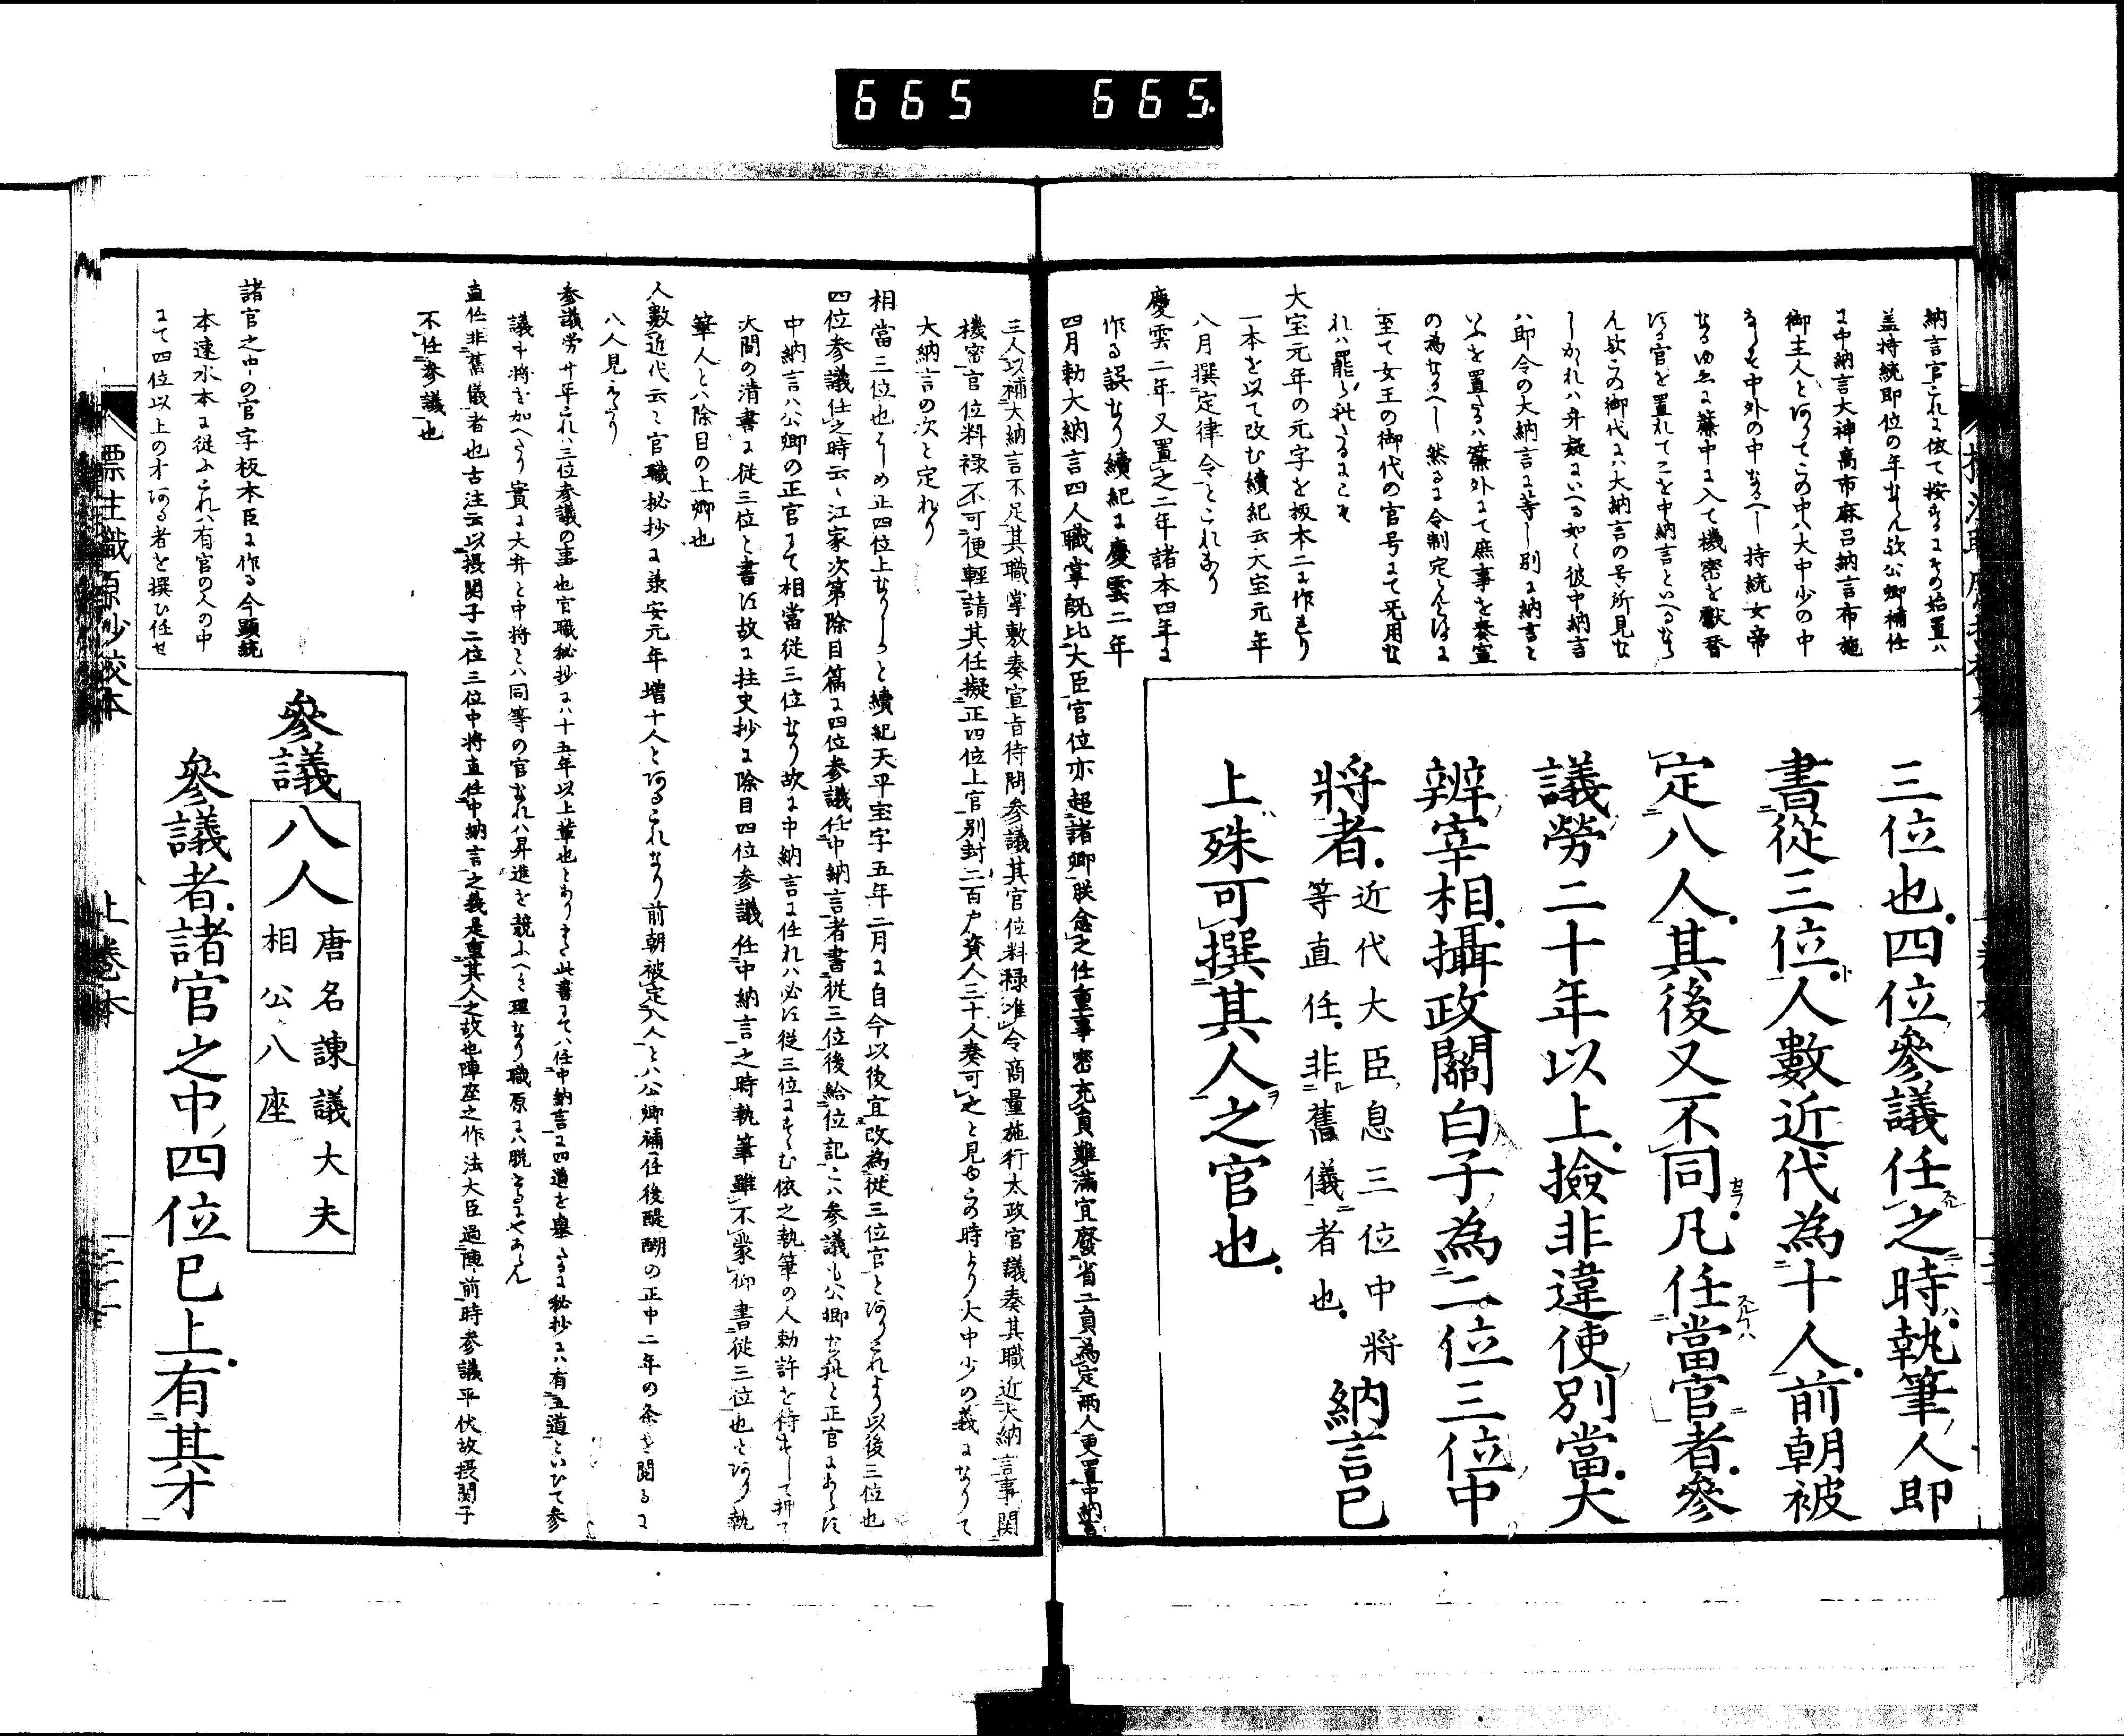 665 665.
納言官これに依て按するにその始置ハ
盖持統即位の年ならん欤公卿補任
に中納言大神高市麻呂納言布施
御主人とありてこの中ハ大中少の中
ならす中外の中なるへし持統女帝
なるゆゑに簾中に入て機密を献替
する官を置れてこを中納言といへるなら
ん欤この御代にハ大納言の号所見な
しかれハ弁疑にいへる如く彼中納言
ハ即令の大納言に等し別に納言と
いふを置るハ簾外にて庶事を奏宣
の為なるへし然るに令制定らるゝに
至て女王の御代の官号にて无用な
れハ罷られたるにこそ
大宝元年の元字を板本二に作れり
一本を以て改む續紀云大宝元年
八月撰定律令とこれなり
慶雲二年又置之二年諸本四年に
作る誤なり續紀に慶雲二年
四月勅大納言四人職掌既比大臣官位亦超諸卿朕念之任重事密充員難滿宜廢省二員為定兩人更置中納言
三位也四位參議任之時執筆人即
書從三位人數近代為十人前朝被
定八人其後又不同凡任當官者參
議勞二十年以上撿非違使別當大
辨宰相攝政關白子為二位三位中
將者近代大臣息三位中將
等直任非舊儀者也納言已
上殊可撰其人之官也
三人以補大納言不足其職掌敷奏宣旨待問参議其官位料禄准令商量施行太政官議奏其職近大納言事関
機密官位料禄不可便輕請其任擬正四位上官別封二百戸資人三十人奏可之と見ゆこの時より大中少の義になりて
大納言の次と定れり
相當三位也はしめ正四位上なりしと續紀天平宝字五年二月に自今以後宜改為從三位官とありこれより以後三位也
四位参議任之時云々江家次第除目篇に四位参議任中納言者書從三位後給位記こハ参議も公卿なれと正官にあらす
中納言ハ公卿の正官にて相當從三位なり故に中納言に任れハ必す從三位にすゝむ依之執筆の人勅許を待すして押て
大間の清書に從三位と書す故に柱史抄に除目四位参議任中納言之時執筆雖不蒙仰書從三位也とあり執
筆人とハ除目の上卿也
人數近代云々官職秘抄に兼安元年増十人とあるこれなり前朝被定八人とハ公卿補任後醍醐の正中二年の条を閲るに
八人見えたり
参議労廿年これハ三位参議の事也官職秘抄にハ十五年以上輩也とありさて此書にてハ任中納言に四道を挙たるに秘抄にハ有五道といひて参
議中将を加へたり實に大弁と中将とハ同等の官なれハ昇進を競ふへき理なり職原にハ脱たるにやあらん
直任非舊儀者也古注云以摂関子二位三位中将直任中納言之義是重其人之故也陣座之作法大臣過陣前時参議平伏故摂関子
不任参議也
諸官之中の官字板本臣に作る今顕統
本速水本に従ふこれハ有官の人の中
にて四位以上の才ある者を撰ひ任せ
參議八人 唐名諫議大夫
相公八座
參議者諸官之中四位已上有其才
標注職原抄校本 上巻本